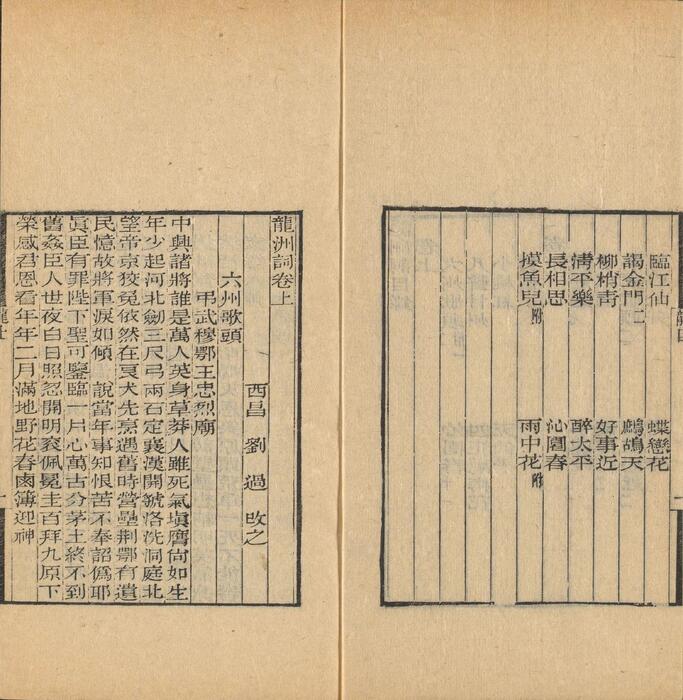 臨江仙　蝶戀花
謁金門二　鷓鴣天
柳梢青　好事近
清平樂　醉太平
長相思　沁園春
摸魚兒附　雨中花附
龍洲詞卷上
西昌　劉過　改之
六州歌頭
弔武穆鄂王忠烈廟
中興諸將誰是萬人英身草莽人雖死氣塡膺尙如生
年少起河北劍三尺弓兩石定襄漢開虢洛洗洞庭北
望帝京狡兔依然在良犬先烹過舊時營壘荆鄂有遺
民憶故將軍淚如傾　說當年事知恨苦不奉詔僞耶
眞臣有罪陛下聖可鑒臨一片心萬古分茅土終不到
舊姦臣人世夜白日照忽開明袞佩冕圭百拜九原下
榮感君恩看年年二月滿地野花春鹵簿迎神